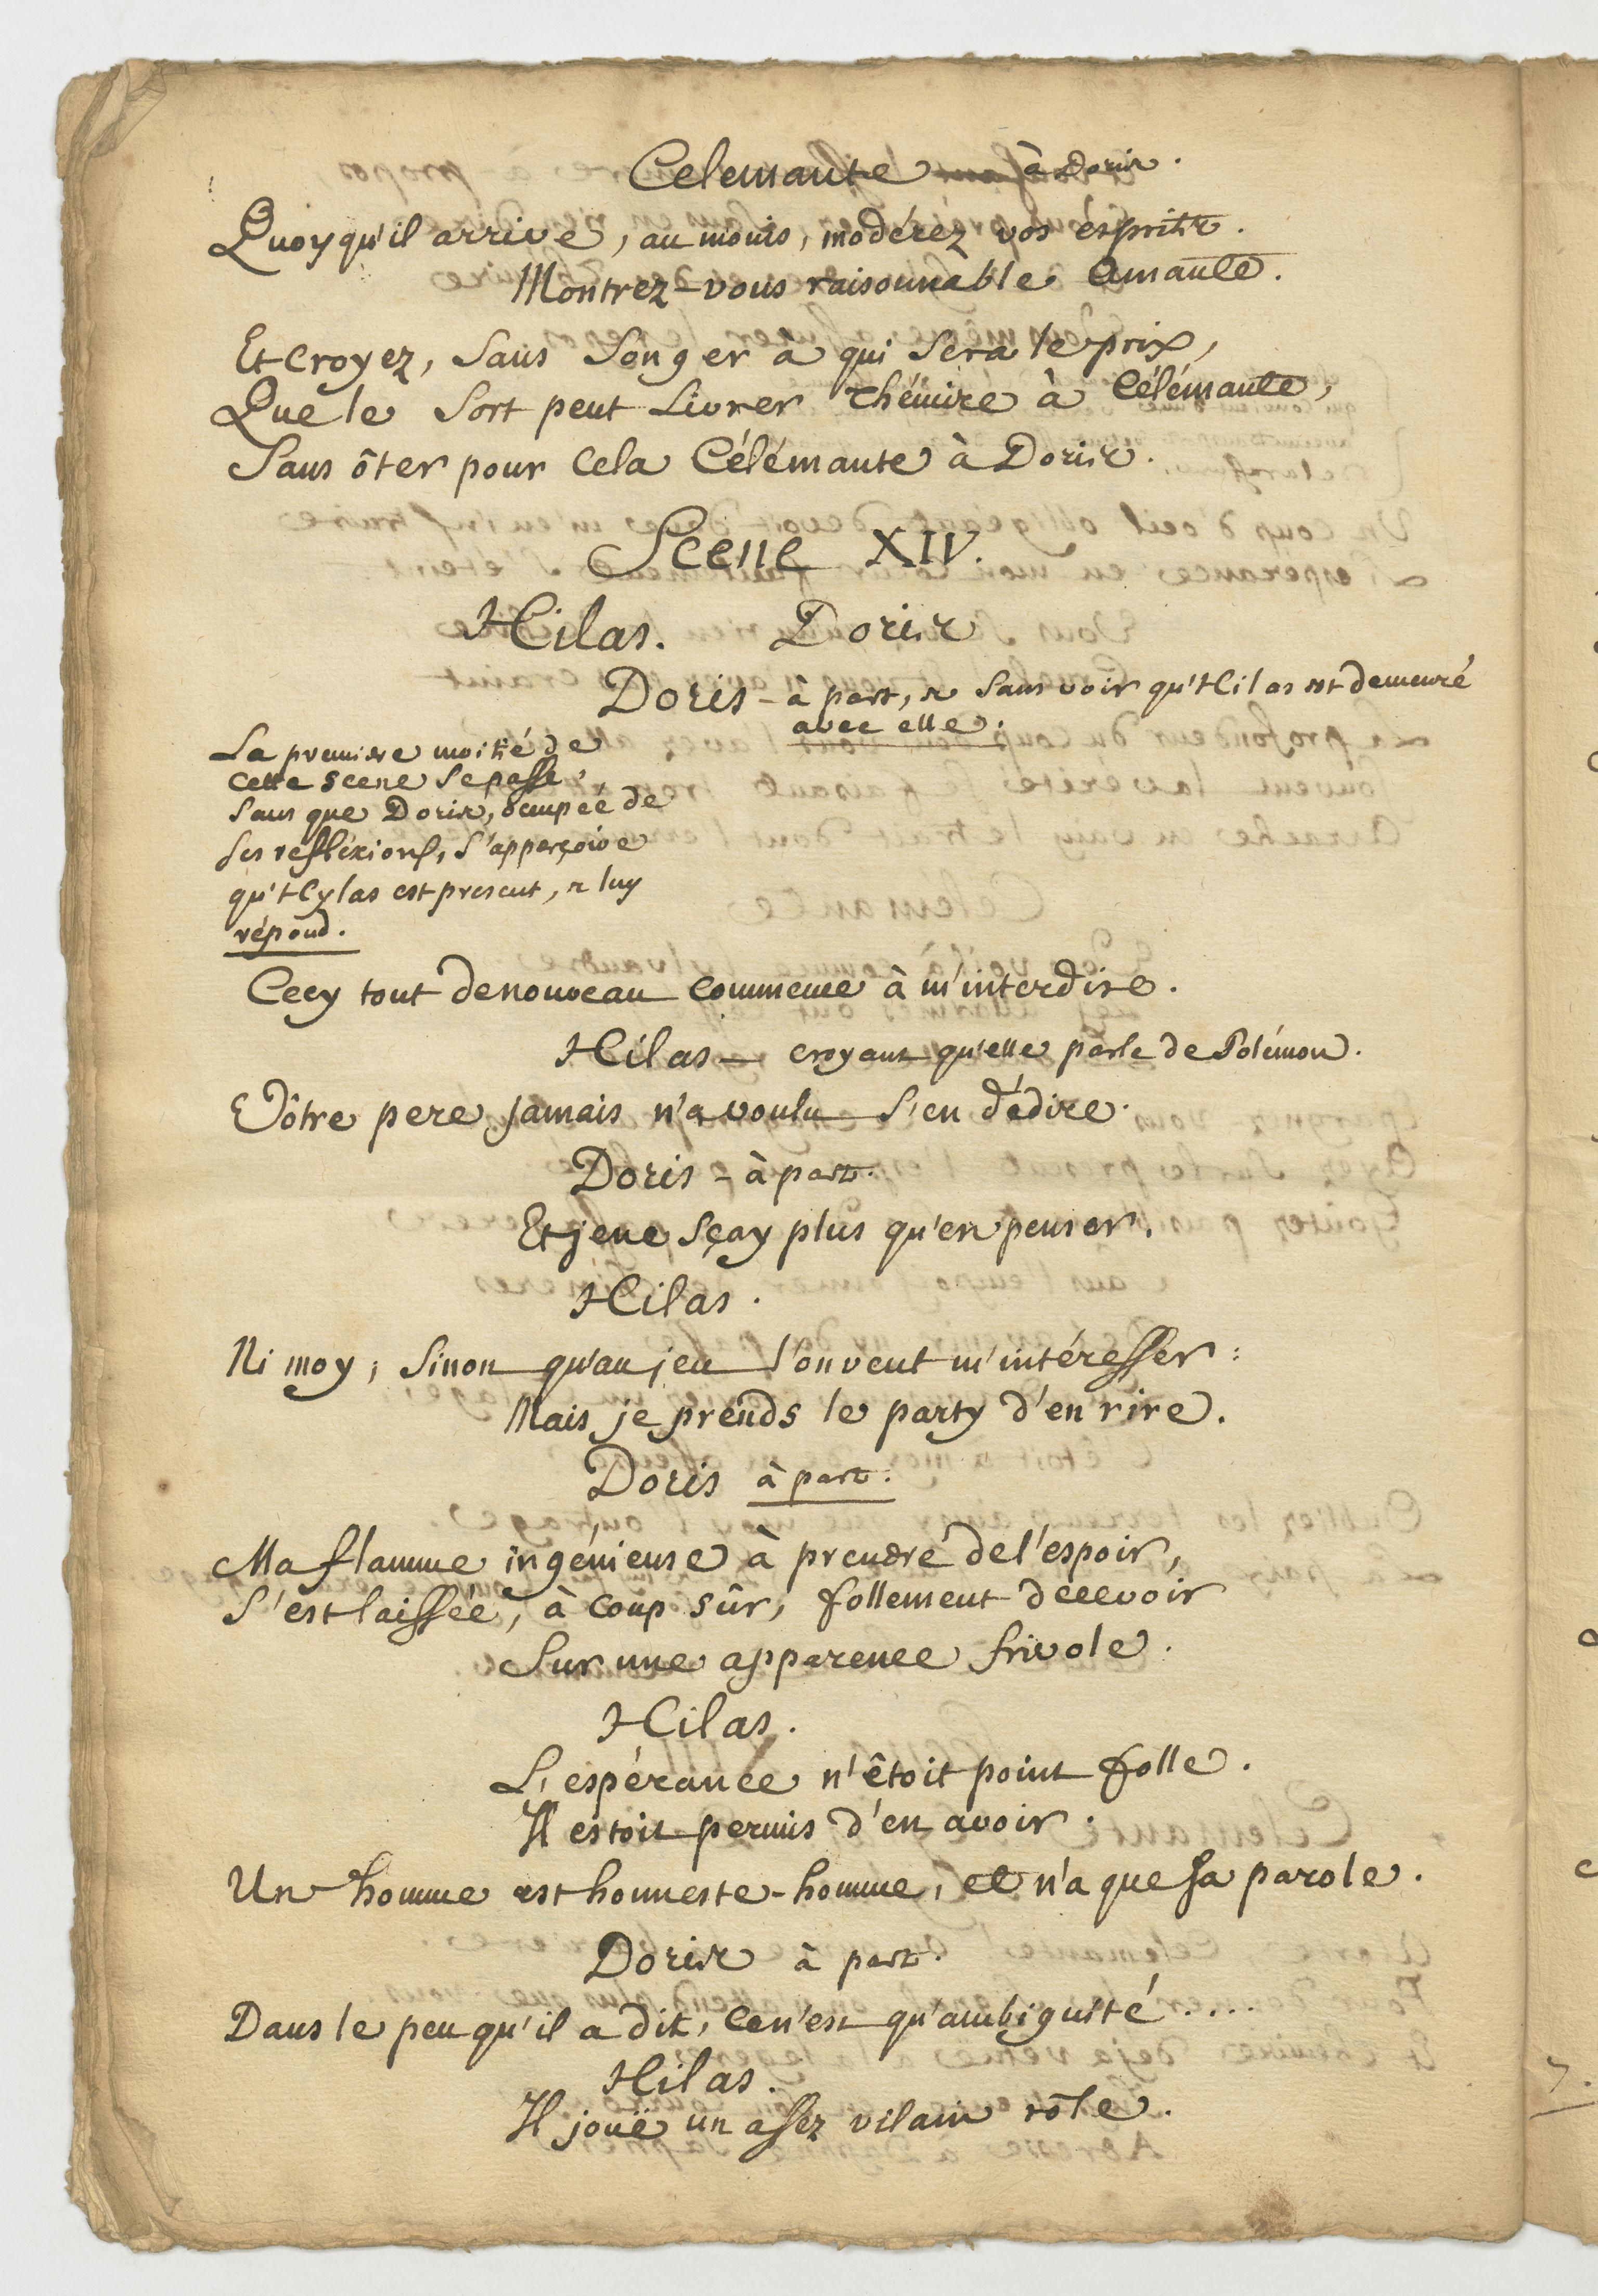 Celemante à Doris.
Quoyqu'il arrive, au moins, modérez vos esprits.
Montrez-vous raisonnable Amante.
Et croyez, sans songer à qui sera le prix,
Que le sort peut livrer Thémire à Célémante,
Sans ôter pour cela Célémante à Doris.
Scene XIV.
Hilas. Doris
Doris - à part, & sans voir qu'Hilas est demeuré
avec elle.
La premiere moitié de
cette scene se passe,
sans que Doris, ocupée de
ses refléxions, s'apperçoive
qu'Hylas est present, & luy
répond.
Cecy tout de nouveau commence à m'interdire.
Hilas - croyant qu'elle parle de Polémon.
Vôtre pere jamais n'a voulu s'en dédire.
Doris - à part.
Et je ne sçay plus qu'en penser.
Hilas.
Ni moy, sinon qu'au jeu l'on veut m'intéresser:
Mais je prends le party d'en rire.
Doris à part.
Ma flamme ingénieuse à prendre de l'espoir,
S'est laissée, à coup sûr, follement decevoir
Sur une apparence frivole.
Hilas.
L'espérance n'êtoit point folle.
Il estoit permis d'en avoir.
Un homme est honneste-homme, et n'a que sa parole.
Doris à part.
Dans le peu qu'il a dit, ce n'est qu'ambiguïté....
Hilas.
Il jouë un assez vilain rôle.